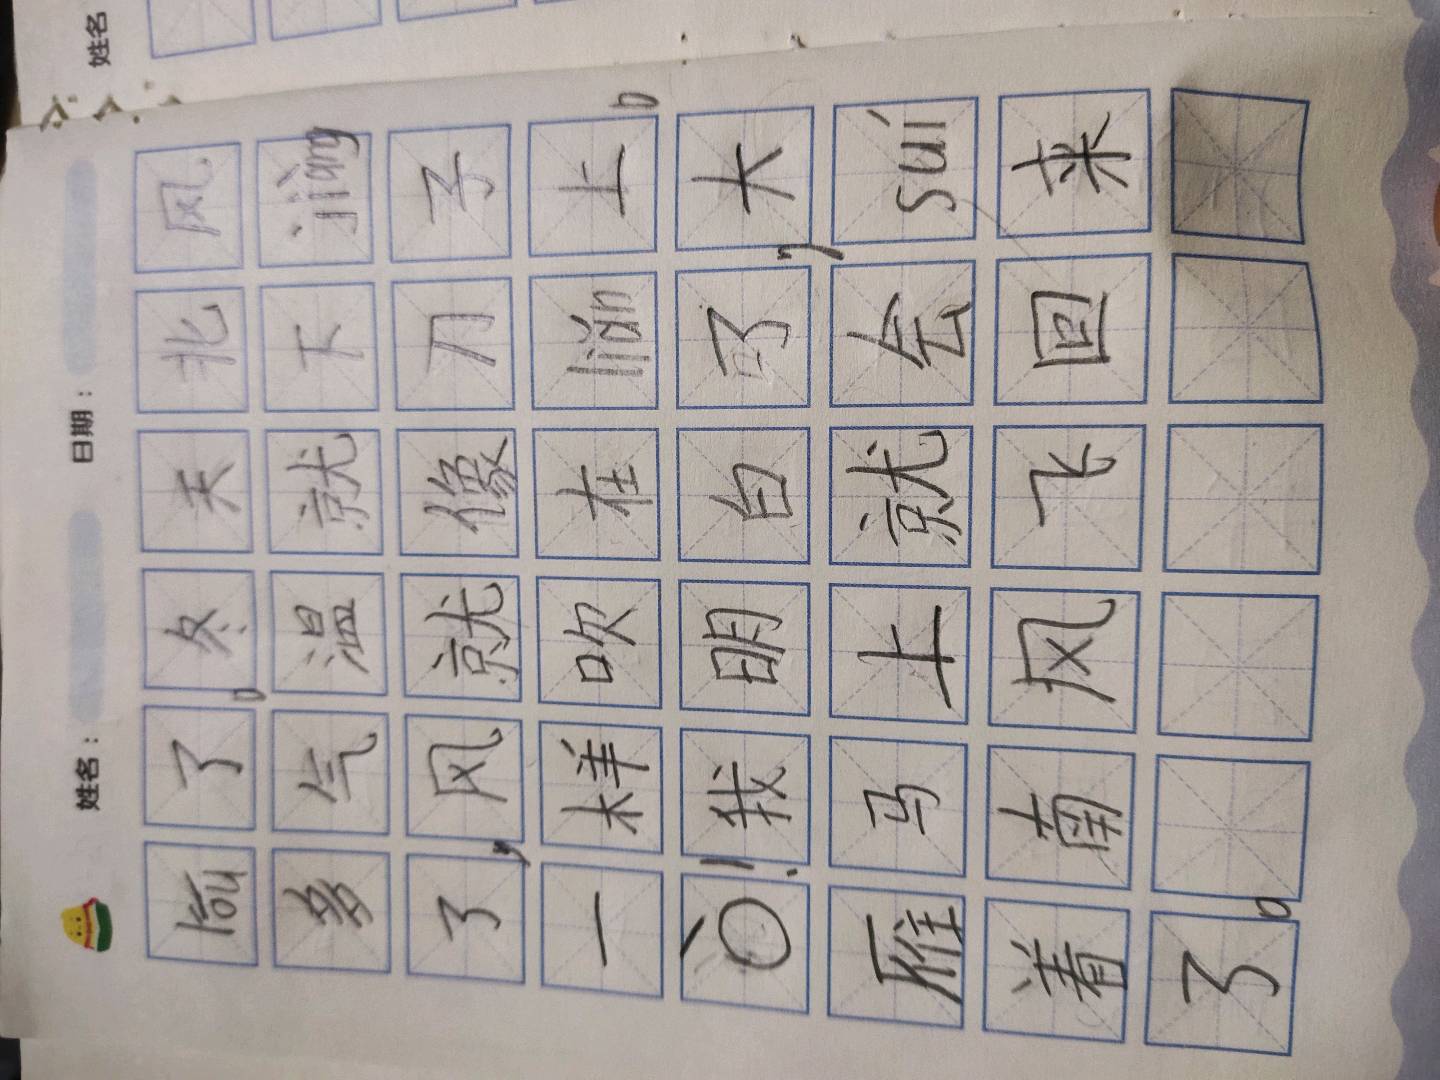 姓名
姓名： 日期：
了。冬天北风
多气温就下jiàng
了，风就像刀子
一样吹在liǎn上。
ò！我明白了，大
雁马上就会suí
着南风飞回来
了。